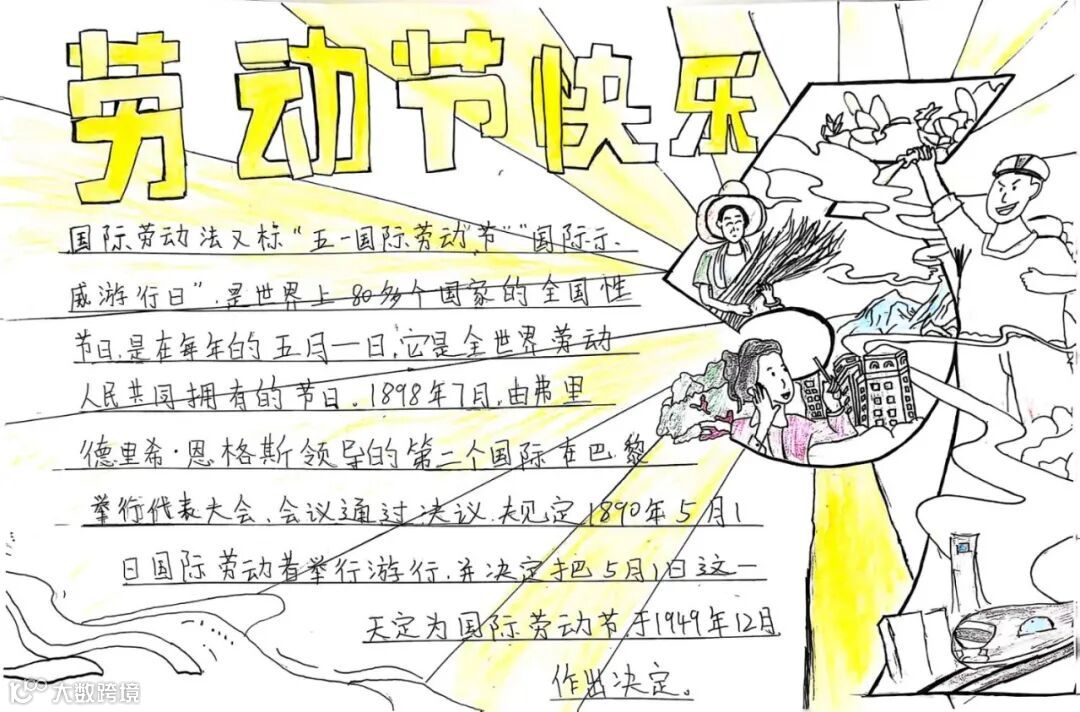 劳动节快乐
国际劳动法又标“五一国际劳动节”“国际示
威游行日”,是世界上80多个国家的全国性
节日,是在每年的五月一日,它是全世界劳动
人民共同拥有的节日。1898年7月,由弗里
德里希·恩格斯领导的第二个国际在巴黎
举行代表大会,会议通过决议,规定1890年5月1
日国际劳动者举行游行,并决定把5月1日这一
天定为国际劳动节于1949年12月
作出决定。
大数跨境